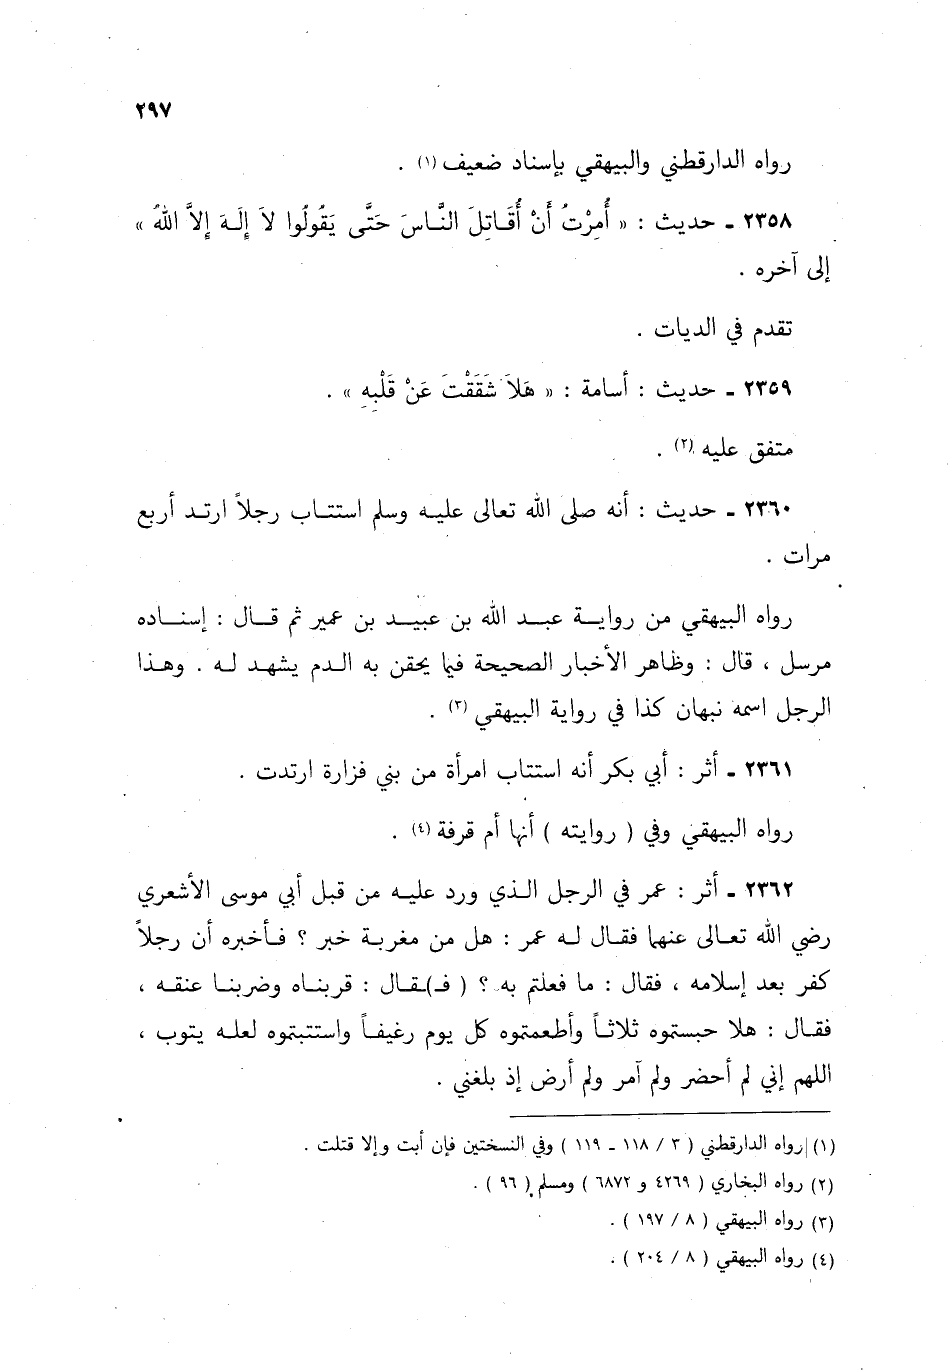 ٢٩٧
رواه الدارقطني والبيهقي بإسناد ضعيف (١) .
٢٣٥٨ ـ حديث : « أُمِرْتُ أَنْ أُقَاتِلَ النَّاسَ حَتَّى يَقُولُوا لاَ إِلَهَ إِلاَّ اللهُ »
إلى آخره .
تقدم في الديات .
٢٣٥٩ ـ حديث : أسامة : « هَلاَ شَقَقْتَ عَنْ قَلْبِهِ » .
متفق عليه (٢) .
٢٣٦٠ ـ حديث : أنه صلى الله تعالى عليه وسلم استتاب رجلاً ارتد أربع
مرات .
رواه البيهقي من رواية عبد الله بن عبيد بن عمير ثم قال : إسناده
مرسل ، قال : وظاهر الأخبار الصحيحة فيما يحقن به الدم يشهد له . وهذا
الرجل اسمه نبهان كذا في رواية البيهقي (٣) .
٢٣٦١ ـ أثر : أبي بكر أنه استتاب امرأة من بني فزارة ارتدت .
رواه البيهقي وفي ( روايته ) أنها أم قرفة (٤) .
٢٣٦٢ ـ أثر : عمر في الرجل الذي ورد عليه من قبل أبي موسى الأشعري
رضي الله تعالى عنهما فقال له عمر : هل من مغربة خبر ؟ فأخبره أن رجلاً
كفر بعد إسلامه ، فقال : ما فعلتم به ؟ ( فـ)ـقال : قربناه وضربنا عنقه ،
فقال : هلا حبستموه ثلاثاً وأطعمتموه كل يوم رغيفاً واستتبتموه لعله يتوب ،
اللهم إني لم أحضر ولم آمر ولم أرض إذ بلغني .
(١) رواه الدارقطني ( ٣ / ١١٨ ـ ١١٩ ) وفي النسختين فإن أبت وإلا قتلت .
(٢) رواه البخاري ( ٤٢٦٩ و ٦٨٧٢ ) ومسلم ( ٩٦ ) .
(٣) رواه البيهقي ( ٨ / ١٩٧ ) .
(٤) رواه البيهقي ( ٨ / ٢٠٤ ) .